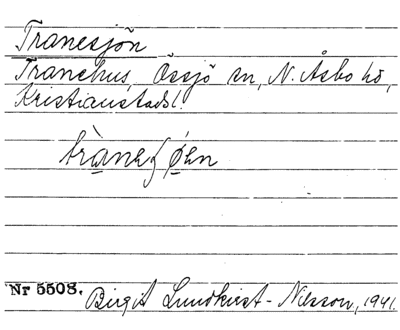 Tranesjön
Tranehus, Össjö sn, N. Åsbo hd,
Kristianstads l.
tra̱neʃø̱en
Nr 5508. Birgit Lundkvist-Nilsson, 1941.